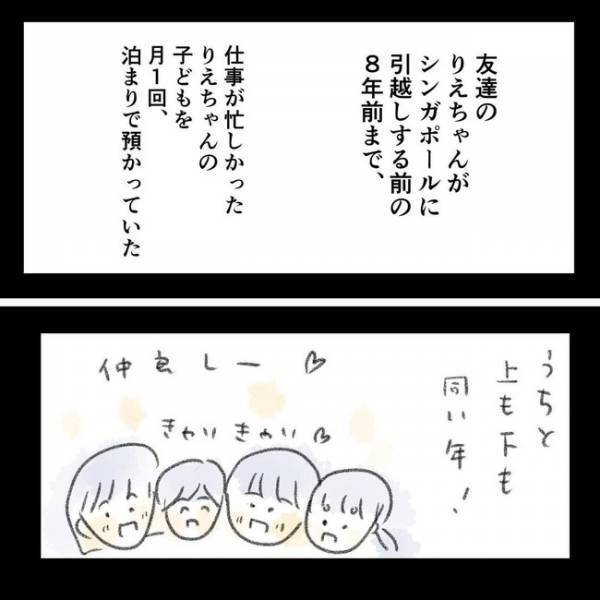 友達の
りえちゃんが
シンガポールに
引越しする前の
8年前まで、
仕事が忙しかった
りえちゃんの
子どもを
月1回、
泊まりで預かっていた
うちと
上も下も
同い年!
仲良しー♡
きゃい きゃい♡